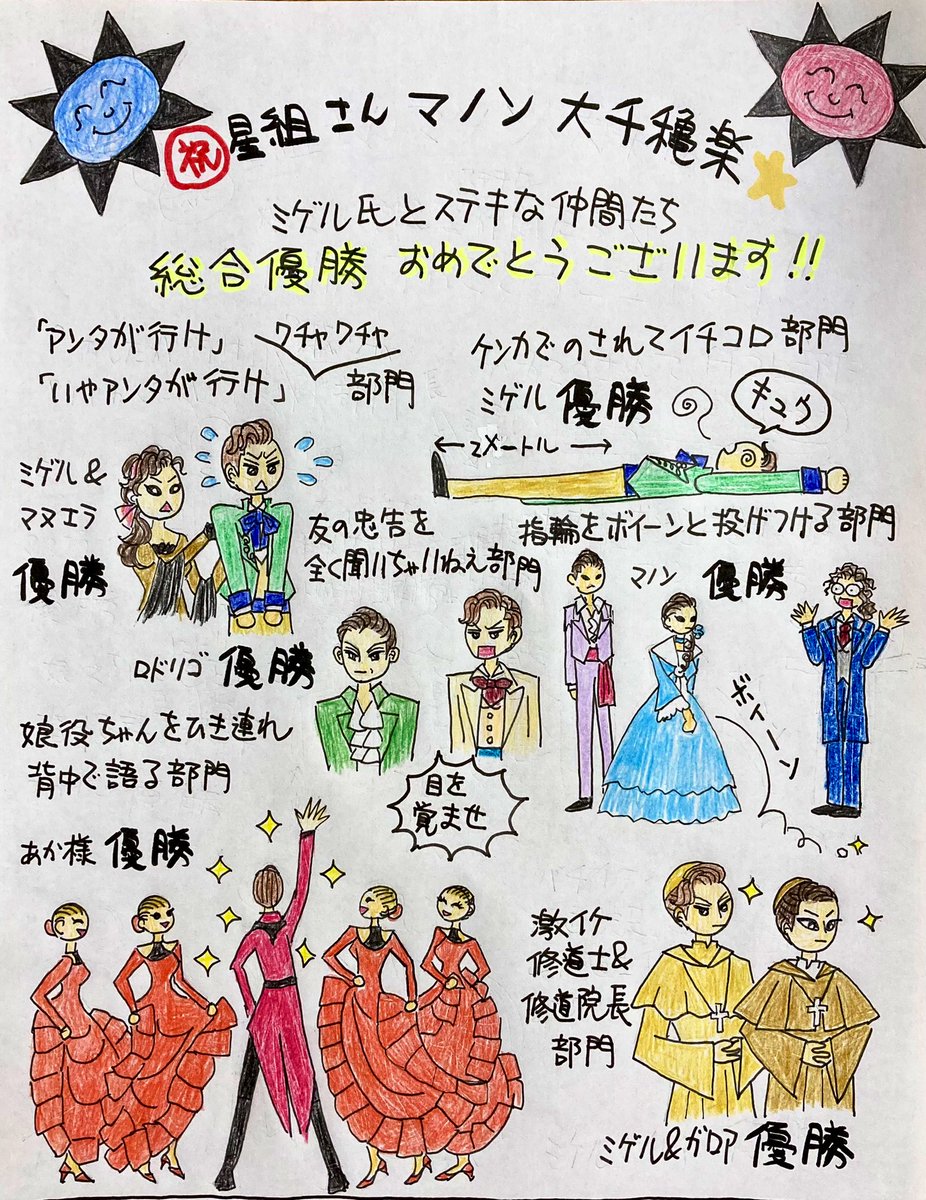 祝 星組さん マノン 大千穐楽
ミゲル氏とステキな仲間たち
総合優勝 おめでとうございます!!
「アンタが行け」
「いやアンタが行け」
ワチャワチャ
部門
ミゲル&
マヌエラ
優勝
ケンカでのされてイチコロ部門
ミゲル 優勝
キュウ
←2メートル→
友の忠告を
全く聞いちゃいねえ部門
ロドリゴ 優勝
目を
覚ませ
指輪をボイーンと投げつける部門
マノン 優勝
ボイーン
娘役ちゃんをひき連れ
背中で語る部門
あか様 優勝
激イケ
修道士&
修道院長
部門
ミゲル&ガロア 優勝